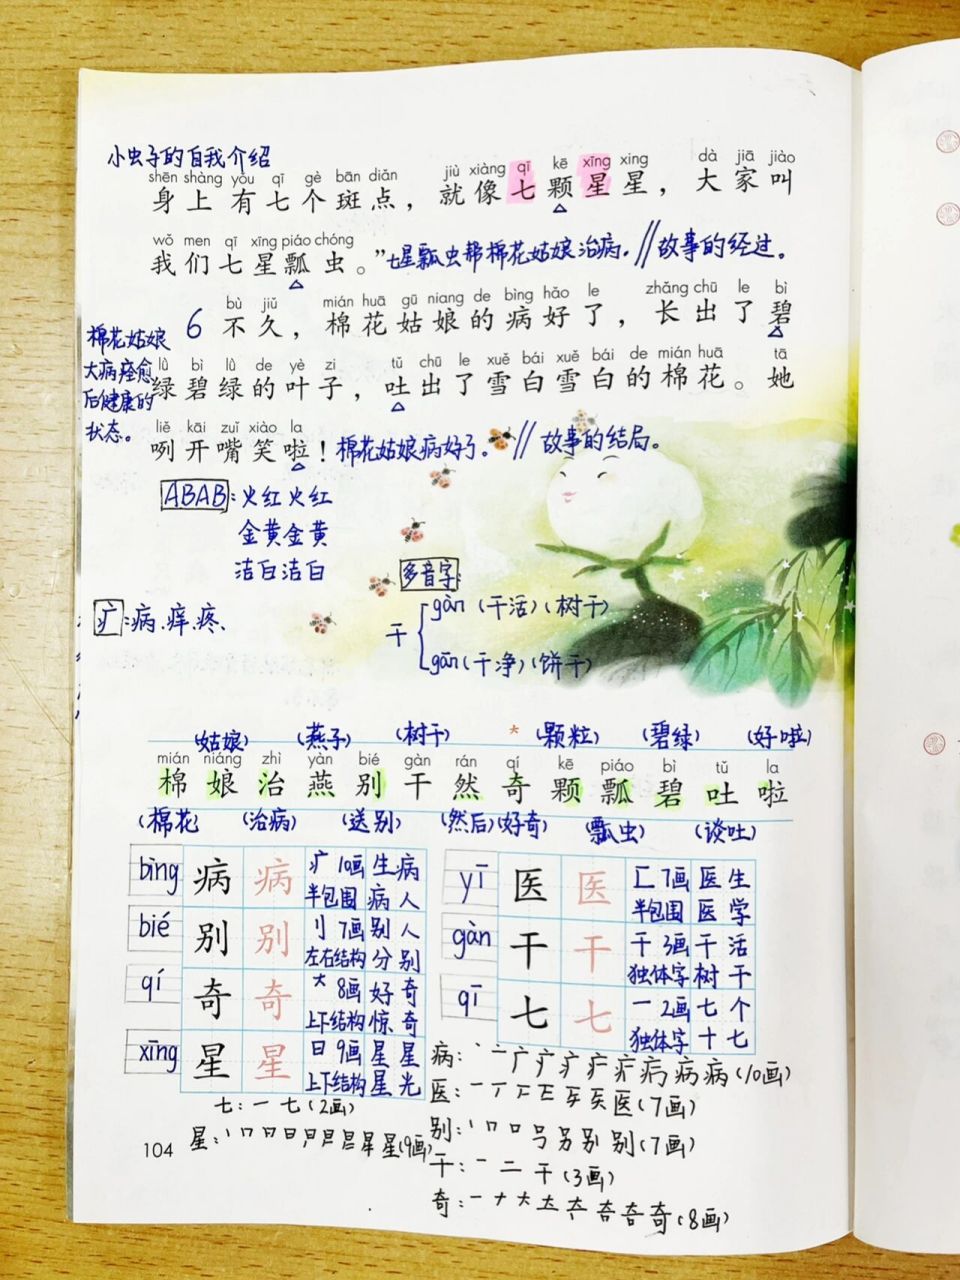 小虫子的自我介绍
shēn shàng yǒu qī gè bān diǎn jiù xiàng qī kē xīng xing dà jiā jiào
身上有七个斑点，就像七颗星星，大家叫
wǒ men qī xīng piáo chóng
我们七星瓢虫。”七星瓢虫帮棉花姑娘治病。//故事的经过。
bù jiǔ mián huā gū niang de bìng hǎo le zhǎng chū le bì
6 不久，棉花姑娘的病好了，长出了碧
棉花姑娘
大病痊愈
后健康的
状态。
lǜ bì lǜ de yè zi tǔ chū le xuě bái xuě bái de mián huā tā
绿碧绿的叶子，吐出了雪白雪白的棉花。她
liě kāi zuǐ xiào la
咧开嘴笑啦！棉花姑娘病好了。//故事的结局。
ABAB：火红火红
金黄金黄
洁白洁白
多音字：
疒：病、痒、疼、
干
gàn（干活）（树干）
gān（干净）（饼干）
（姑娘）（燕子）（树干）*（颗粒）（碧绿）（好啦）
mián niáng zhì yàn bié gàn rán qí kē piáo bì tǔ la
棉娘治燕别干然奇颗瓢碧吐啦
（棉花）（治病）（送别）（然后）（好奇）（瓢虫）（谈吐）
bìng 病 病 疒 10画 生病
半包围 病人
bié 别 别 刂 7画 别人
左右结构 分别
qí 奇 奇 大 8画 好奇
上下结构 惊奇
xīng 星 星 日 9画 星星
上下结构 星光
yī 医 医 匚 7画 医生
半包围 医学
gàn 干 干 干 3画 干活
独体字 树干
qī 七 七 一 2画 七个
独体字 十七
七：一 七（2画）
104
病：丶 亠 广 病 病（10画）
医：一 医（7画）
别：丨 口 口 别 别（7画）
干：一 二 干（3画）
奇：一 ナ 大 奇（8画）
星：丨 口 日 日 星（9画）